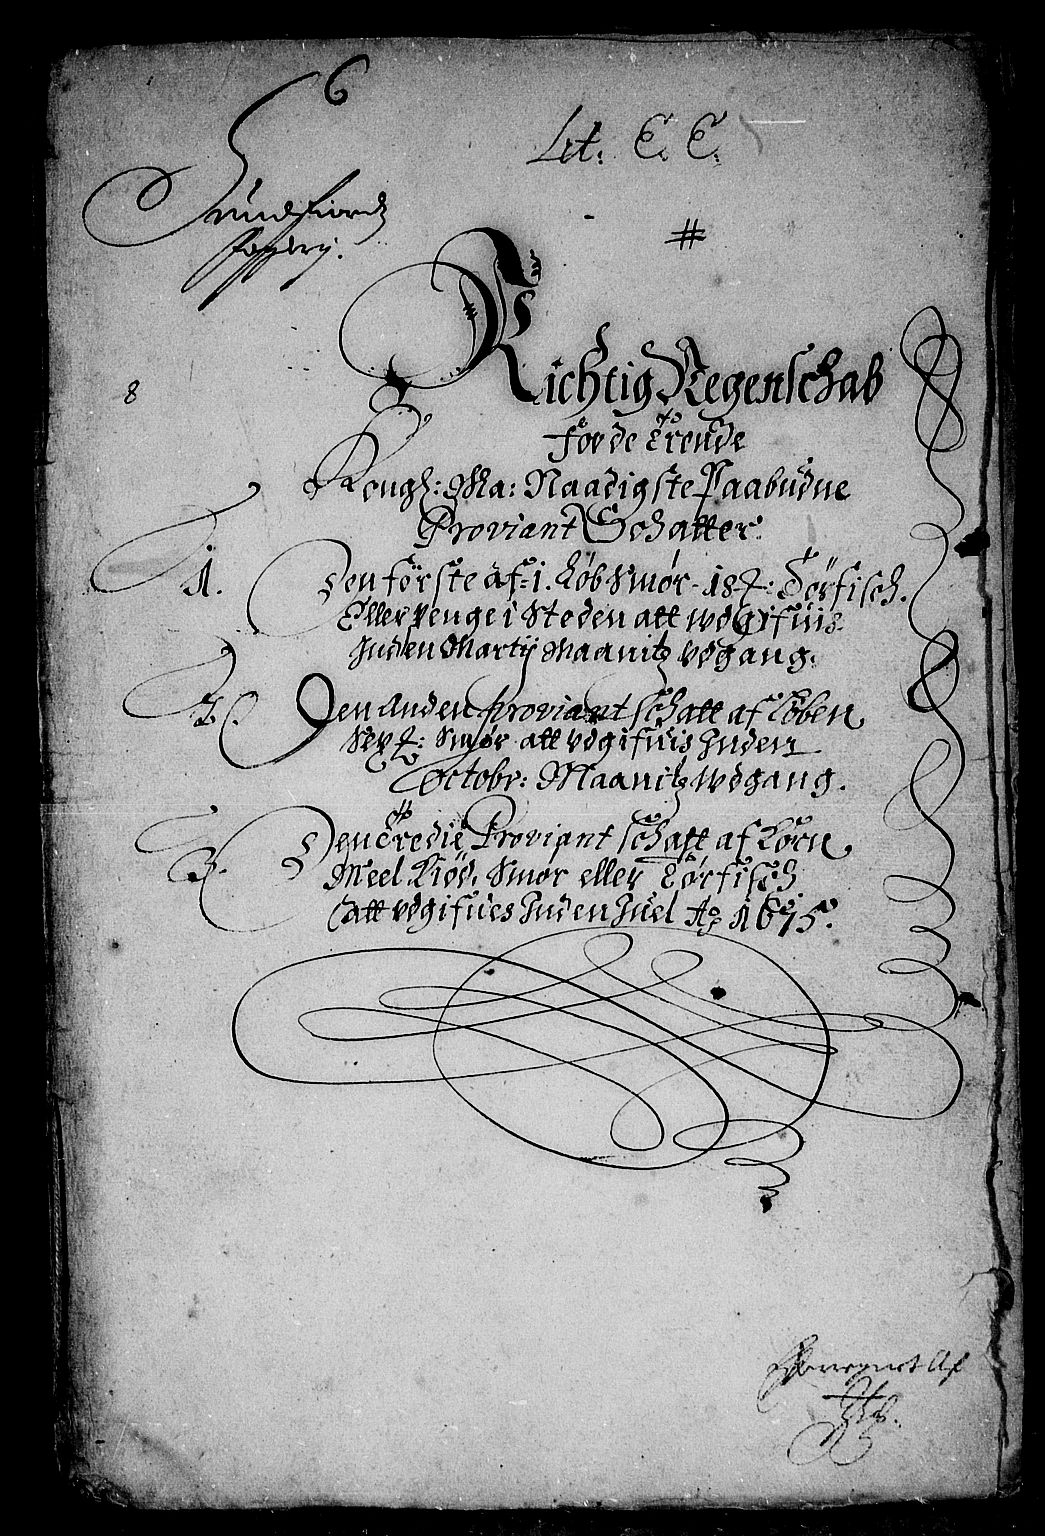 6
Lit: C. C.
Sundfiordz
fogderij.
#
Richtig Regenschab
8
for de Trende
Kongl: Ma: Naadigste Paabudne
Proviant Schatter.
1. Den förste af 1. Löb Smör - 18 ℔: Törfisch.
Eller penge i Steden att udgifuis
Inden Martij Maanitz udgang.
2. Den Anden proviant schatt af Löben
Sex ℔: Smør att udgifuis Inden
Octobr: Maanitz udgang.
3. Den Tredie Proviant schatt af Korn
Meel Kiöd, Smör eller Törfisch
att udgifues Inden Juel Ao 1675.
Af